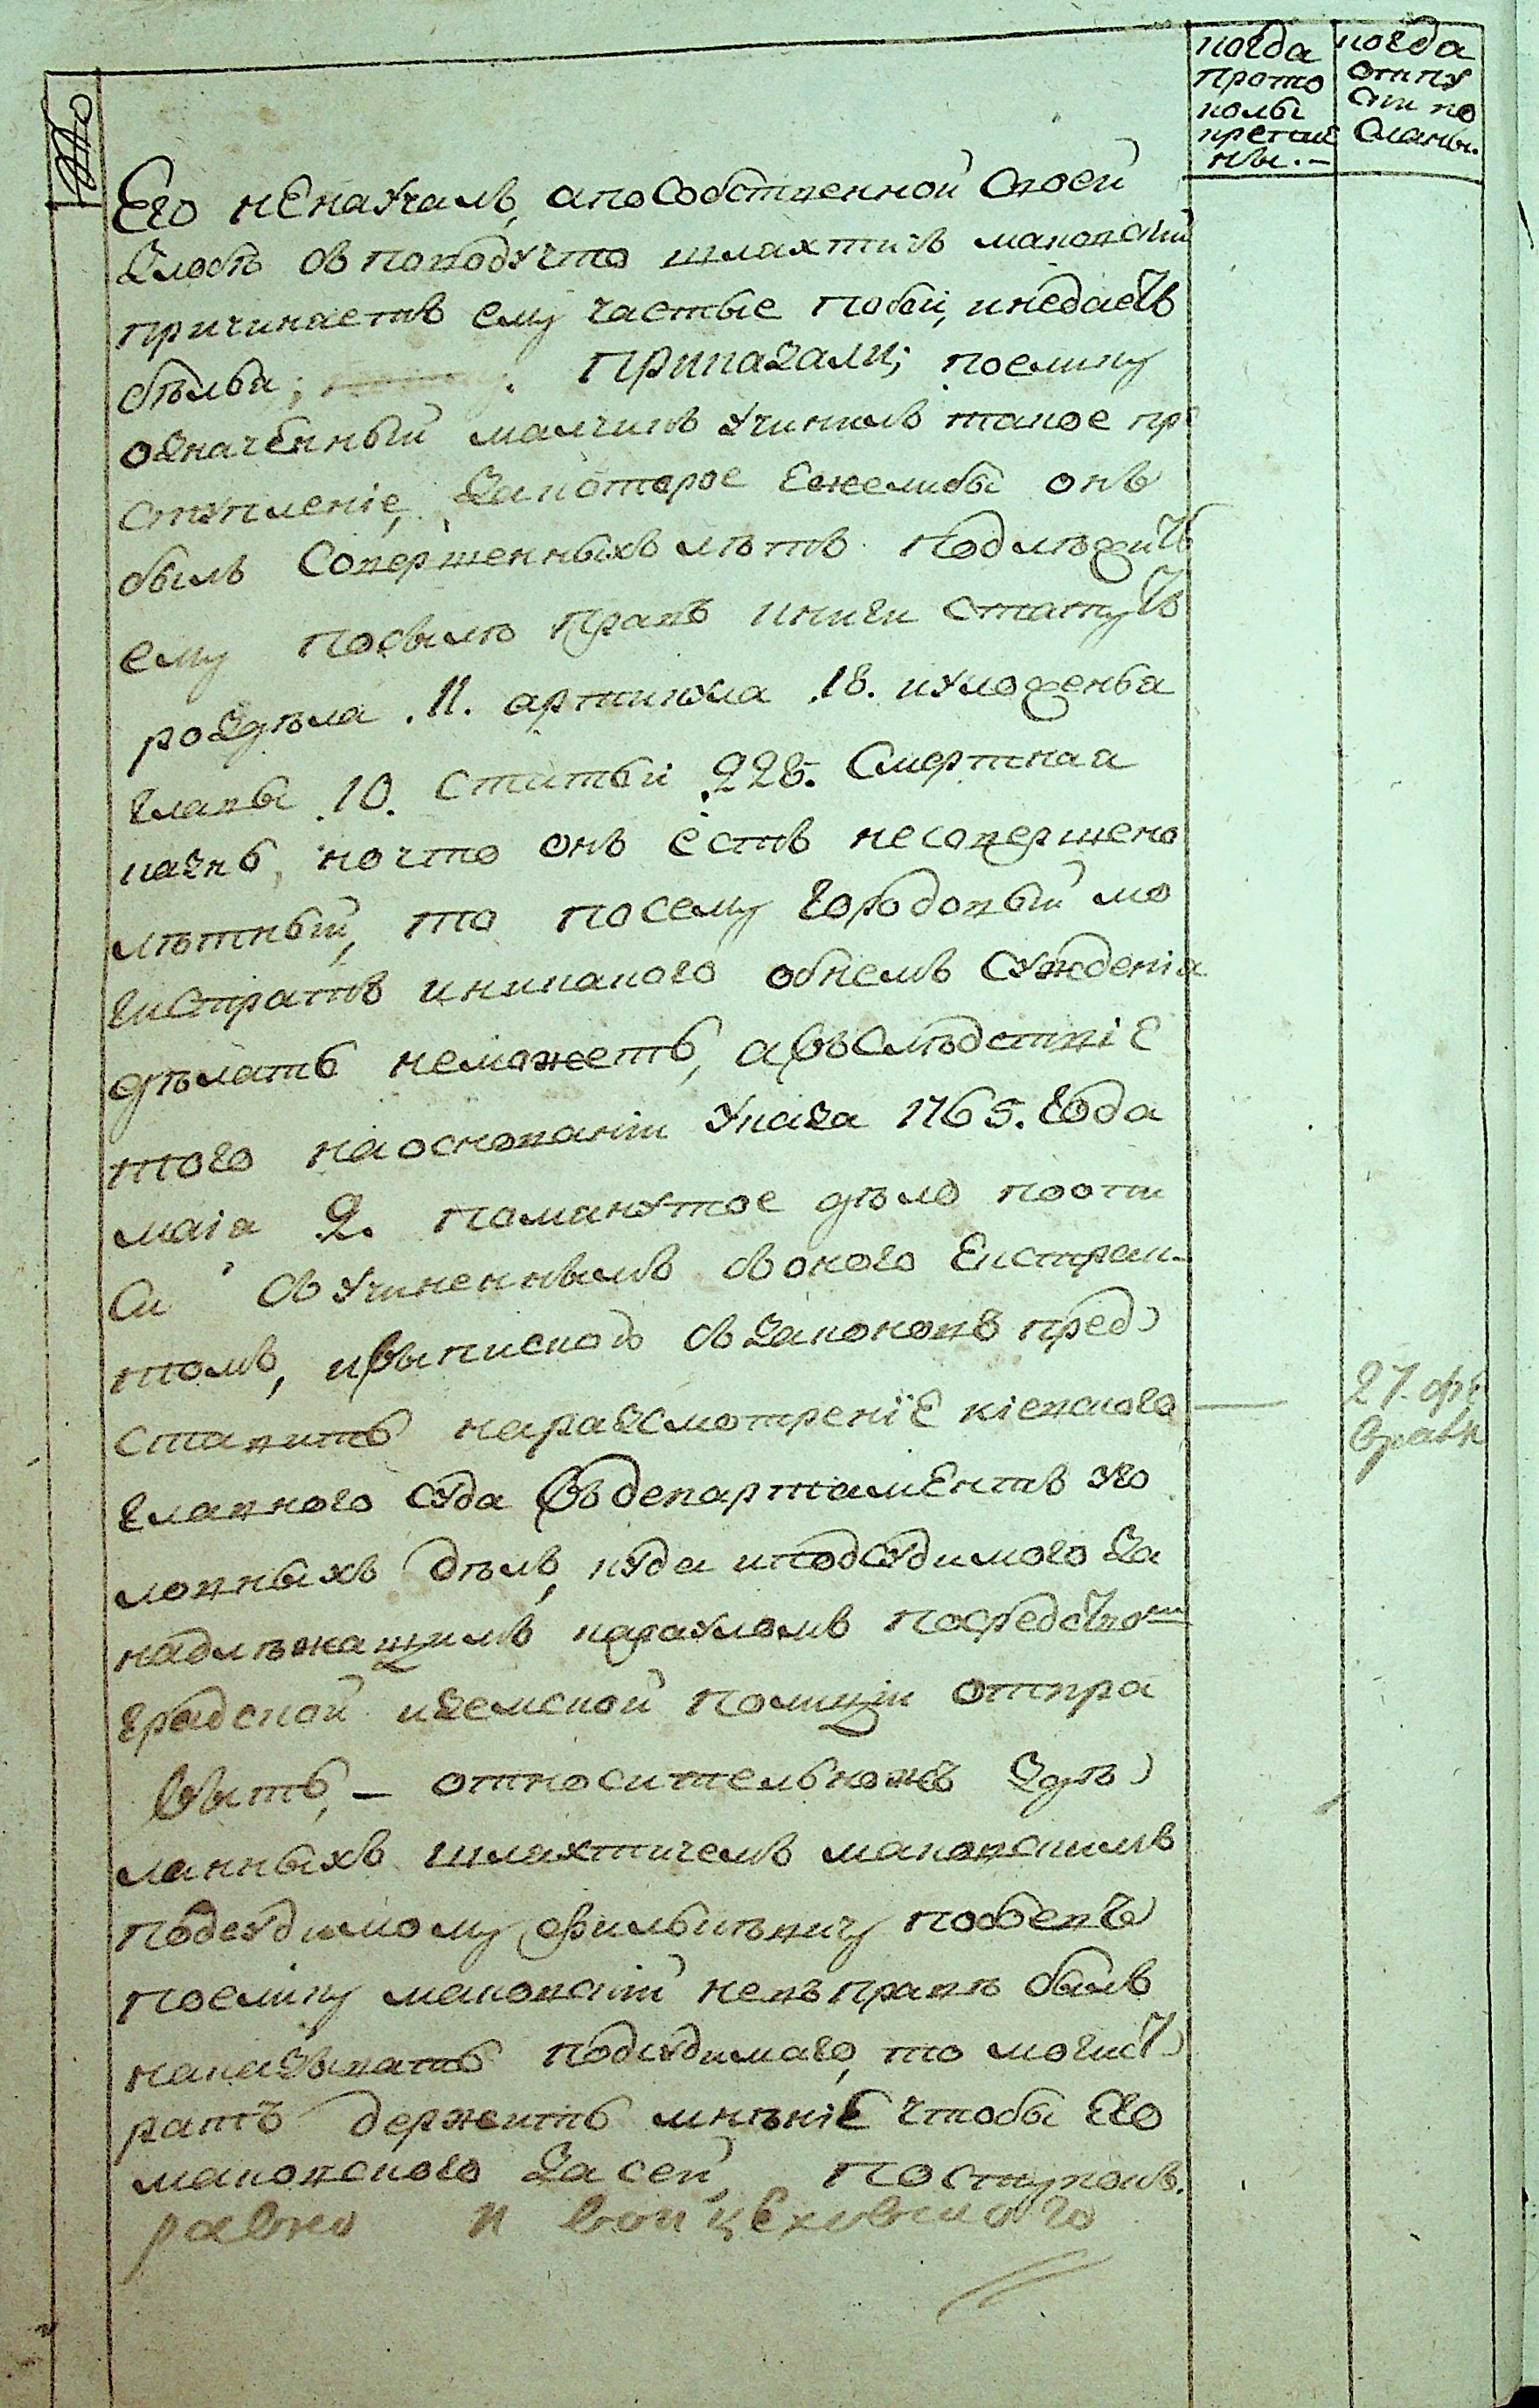 когда
прото
колы
крепле
ны.–
когда
отпу
ски по
сланы.
Его ненаучалъ, апособственной своей
злобѣ съ поводу что шляхтичъ маковскій
причиняетъ ему частые побои, инедаетъ
бѣлья; приказали; поелику
означенный малчикъ учинилъ такое пре
ступленіе, закоторое ежелибы онъ
былъ совершенныхъ лѣтъ подлѣжитъ
ему посилѣ правъ книги статутъ
роздѣла .11. артикула .18. иуложенья
главы .10. статьи .228. смертная
казнь, ночто онъ есть несовершено
лѣтный, то посему городовый ма
гистратъ иникакого обнемъ сужденія
дѣлать неможетъ, авъслѣдствіе
того наоснованіи указа 1765. года
маія 2. помянутое дѣло пооти
си съ учиненнымъ съ оного екстрак-
томъ, ивыпискою съ законовъ пред
ставить наразсмотреніе кіевского
главного суда въ департаментъ уго
ловныхъ дѣлъ, куда иподсудимого за
надлѣжащимъ карауломъ посредствомъ
градской иземской полиціи отпра
вить, – относительножъ здѣ
ланныхъ шляхтичемъ маковскимъ
подсудимому филькѣвичу побоевъ
поелику маковскій невъправѣ былъ
наказывать подсудимаго, то магист
ратъ держитъ мнѣніе чтобы его
маковского засей поступокъ.
равно и войцеховского
27. фе
враля